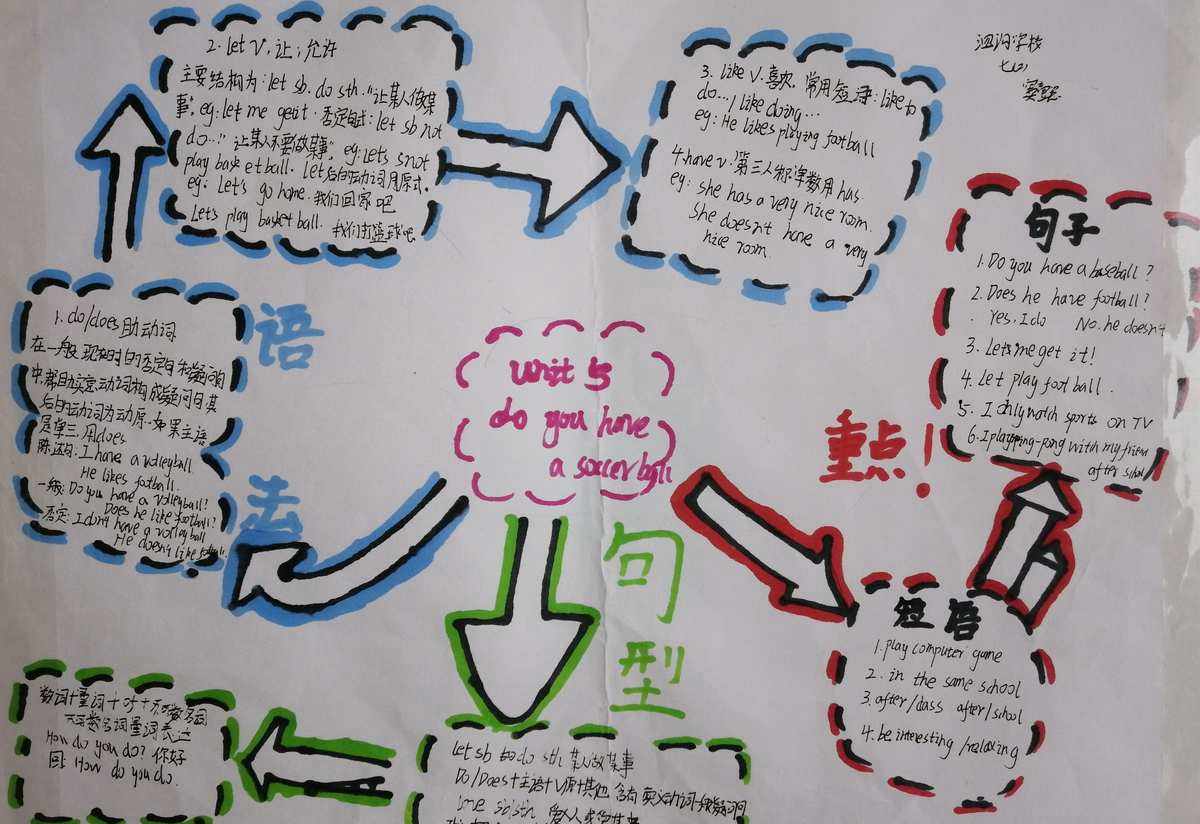 2. let v. 让; 允许
主要结构为: let sb. do sth. "让某人做某
事". eg: let me get it. 否定式: let sb not
do..." 让某人不要做某事", eg: Lets snot
play basketball. let后的动词用原式.
eg: Let's go home. 我们回家吧
Lets play basketball. 我们打篮球吧
3. like v. 喜欢. 常用短语: like to
do.../ like doing...
eg: He likes playing football
4. have v. 第三人称单数用 has.
eg: she has a very nice room.
she doesn't have a very
nice room.
学校
1. do/does 助动词
在一般现在时的否定句和疑问句
中, 帮助实意动词构成疑问句其
后的动词为动原. 如果主语
是单三, 用does
陈述句: I have a volleyball
He likes fotball.
一般: Do you have a volleyball?
Does he like football?
否定: I don't have a volleyball
He doesn't like football.
语
法
unit 5
do you have
a soccer ball
句型
重点!
句子
1. Do you have a baseball?
2. Does he have football?
Yes. I do No. he doesn't
3. Lets me get it!
4. Let play football.
5. I only watch sports on TV
6. I play ping-pong with my friend
after school
短语
1. play computer game
2. in the same school
3. after/class after/school
4. be interesting /relaxing
数词+量词+of+不可数名词
不可数名词量词表达
How do you do? 你好
回: How do you do.
Let sb do sth 某人做某事
Do/Does+主语+V原+其他 含有实义动词一般疑问句